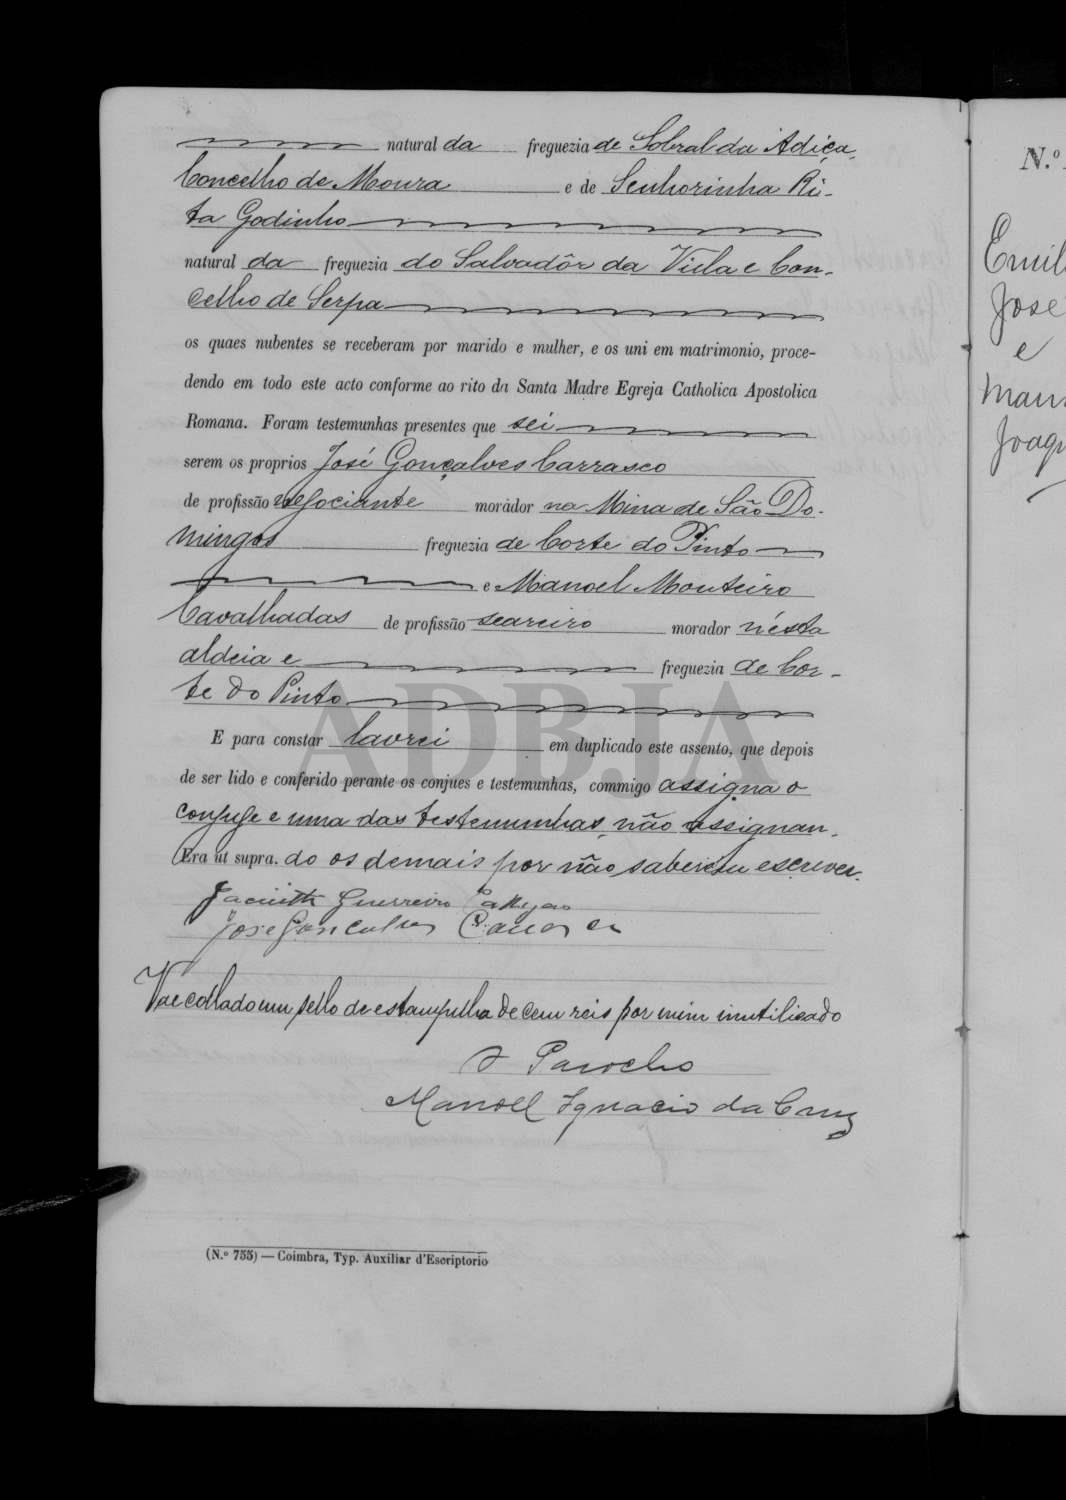 natural da freguezia de Sobral da Adiça,
Concelho de Moura e de Senhorinha Ri-
ta Godinho
natural da freguezia do Salvadôr da Villa e Con-
celho de Serpa
os quaes nubentes se receberam por marido e mulher, e os uni em matrimonio, proce-
dendo em todo este acto conforme ao rito da Santa Madre Egreja Catholica Apostolica
Romana. Foram testemunhas presentes que sei
serem os proprios José Gonçalves Carrasco
de profissão negociante morador na Mina de São Do-
mingos freguezia de Corte do Pinto
e Manoel Monteiro
Cavalhadas de profissão seareiro morador n'ésta
aldeia e freguezia de Cor-
te do Pinto
ADBJA
E para constar lavrei em duplicado este assento, que depois
de ser lido e conferido perante os conjues e testemunhas, commigo assigna o
conjuge e uma das testemunhas, não assignan-
Era ut supra. do os demais por não saberem escrever.
Jacintho Guerreiro
José Gonçalves Carrasco
Vae collado um sello de estampilha de cem reis por mim inutilisado
O Parocho
Manoel Ignacio da Cruz
(N.º 755) — Coimbra, Typ. Auxiliar d'Escriptorio
N.º
Emil
José
e
Mari
Joaq